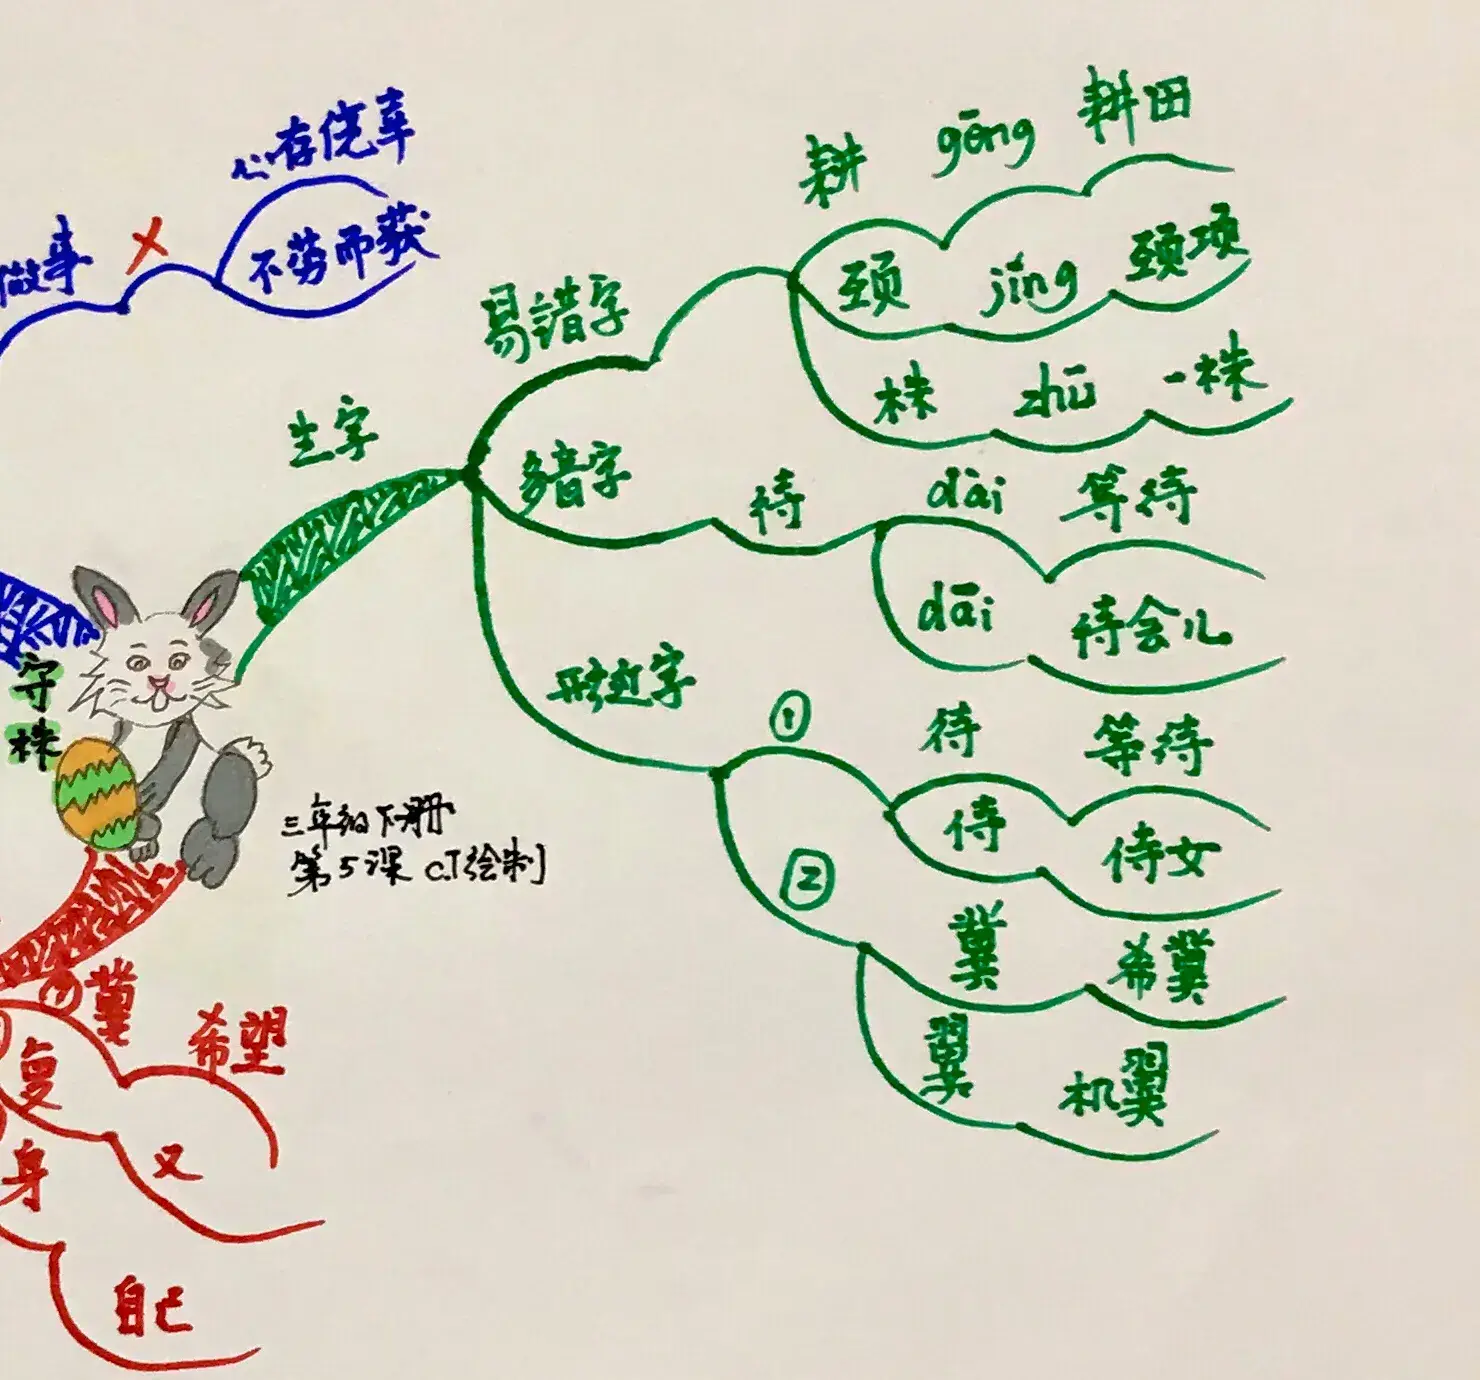 心存侥幸
做事 × 不劳而获
生字
易错字
耕 gēng 耕田
颈 jǐng 颈项
株 zhū 一株
多音字 待
dài 等待
dāi 待会儿
形近字
①
待 等待
侍 侍女
②
冀 希冀
翼 机翼
守
株
三年级下册
第5课 C.T绘制
①冀 希望
复 又
身 自己